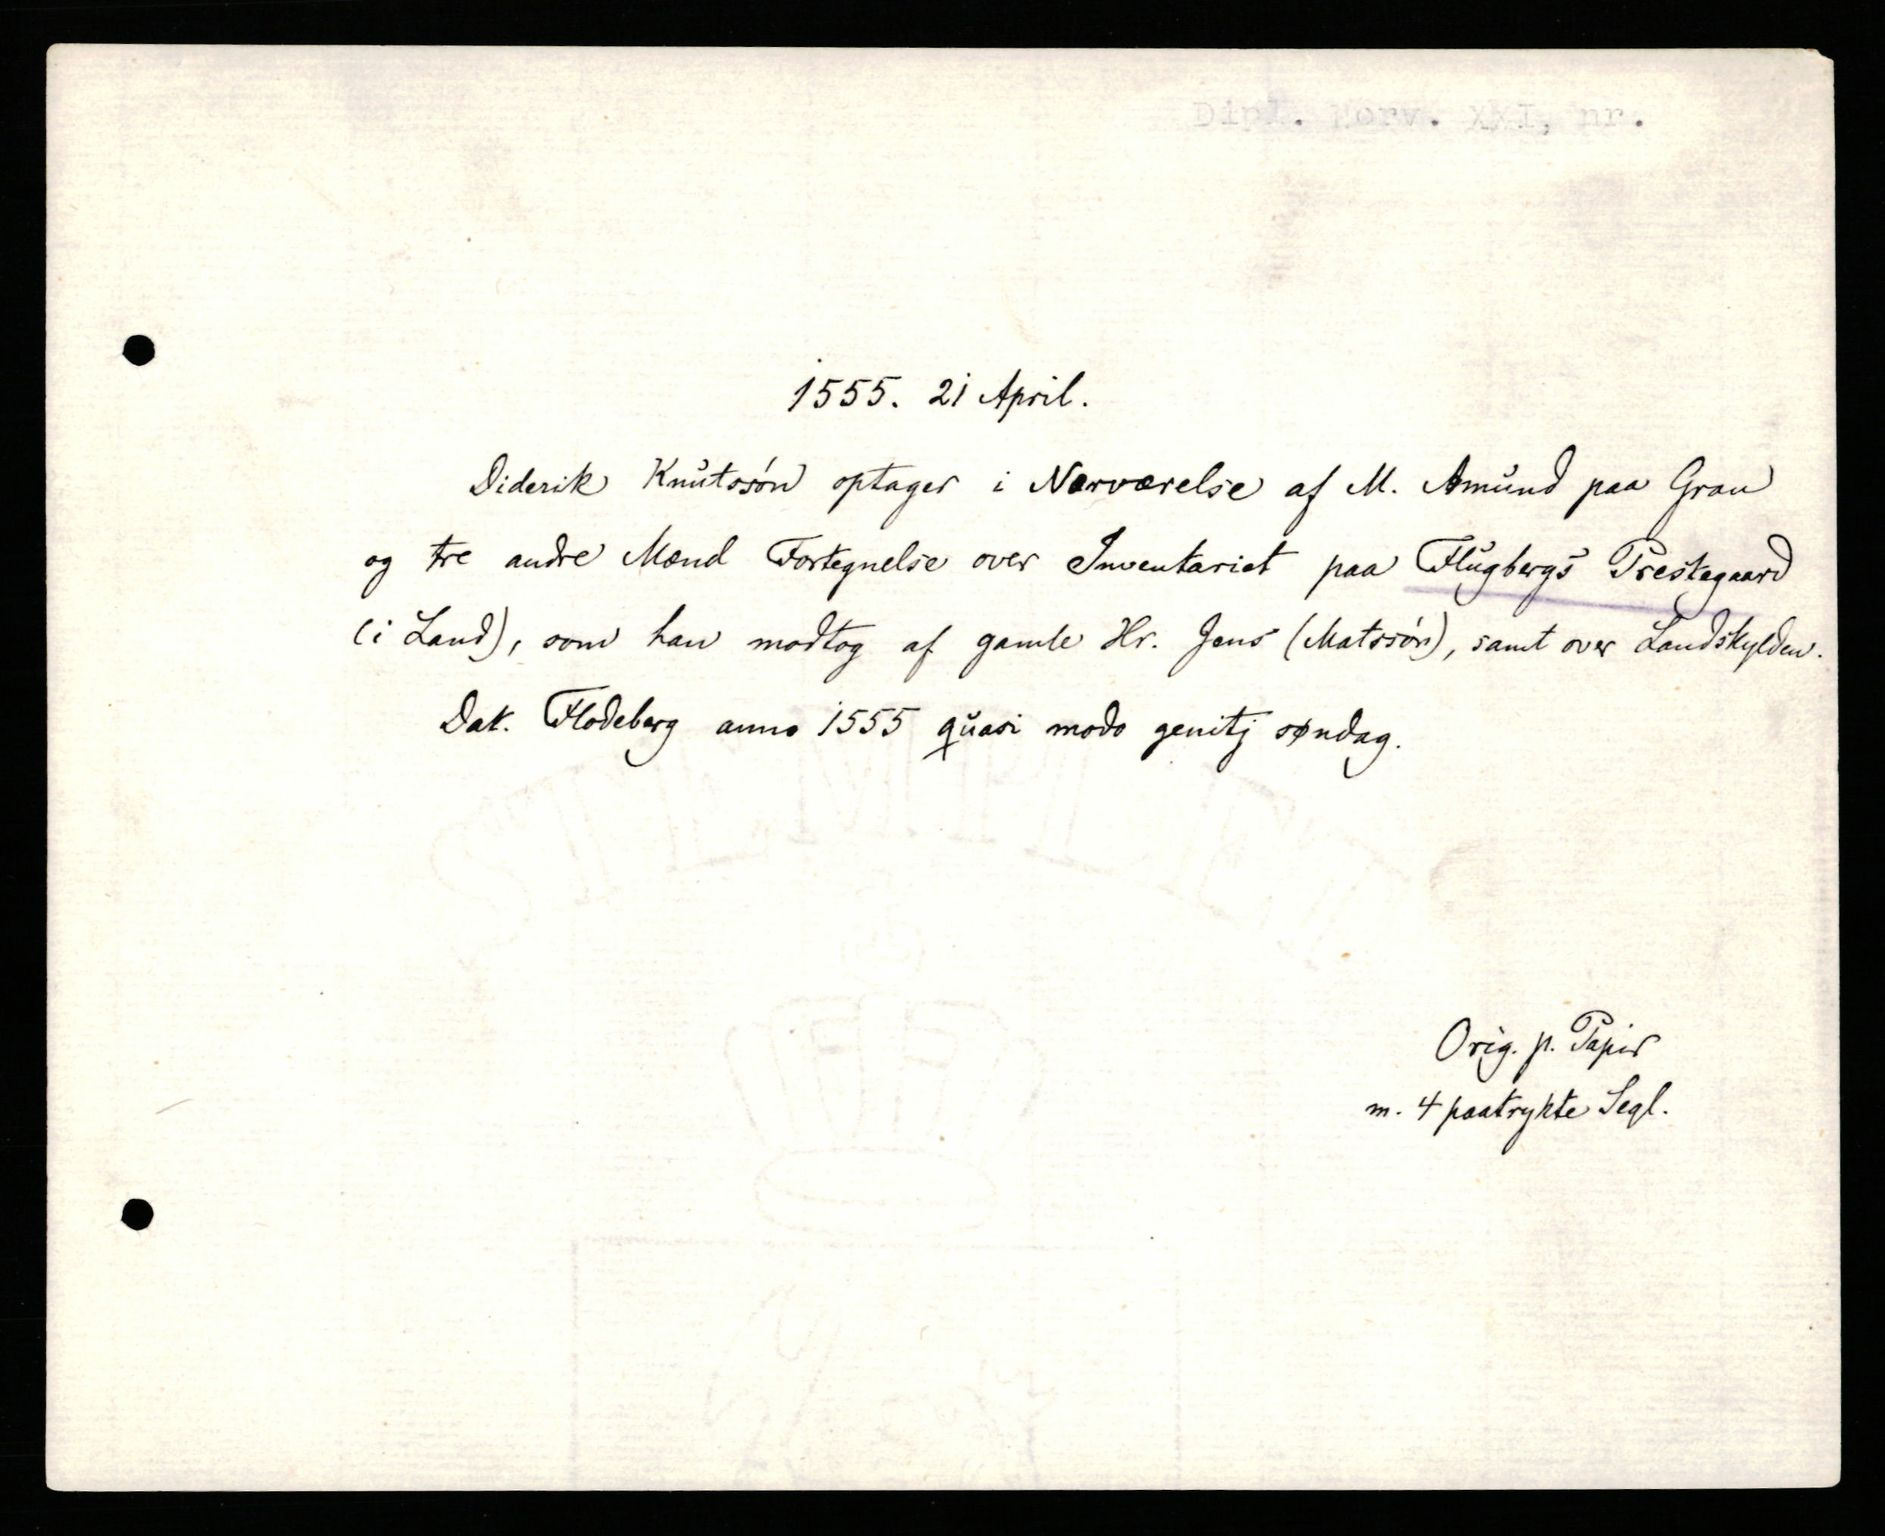 Dipl. Norv. XXI, nr.
1555. 21 April.
Diderik Knutssón optager i Nærværelse af M. Amund paa Gran
og tre andre Mænd Fortegnelse over Inventariet paa Flugbergs Prestegaard
(i Land), som han modtog af gamle Hr. Jens (Matssón), samt over Landskylden.
Dat. Flodeberg anno 1555 quasi modo genitj søndag.
Orig. p. Papir
m. 4 paatrykte Segl.